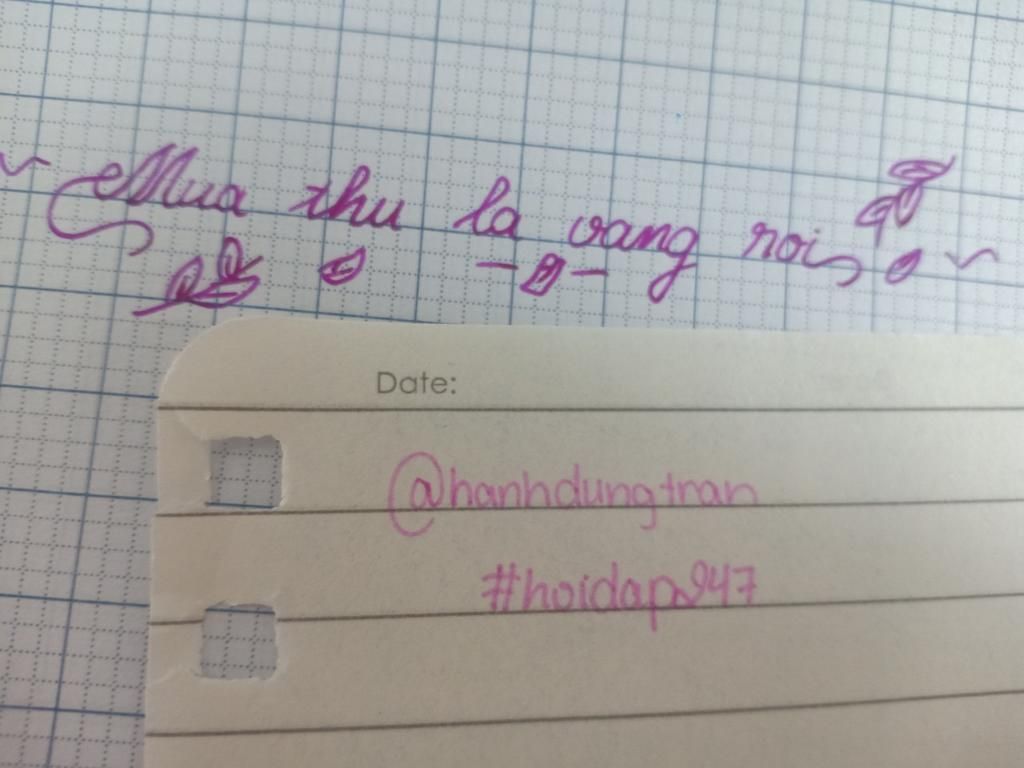 ~ Mua thu la vang roi ~
Date:
@hanhdungtran
#hoidap247